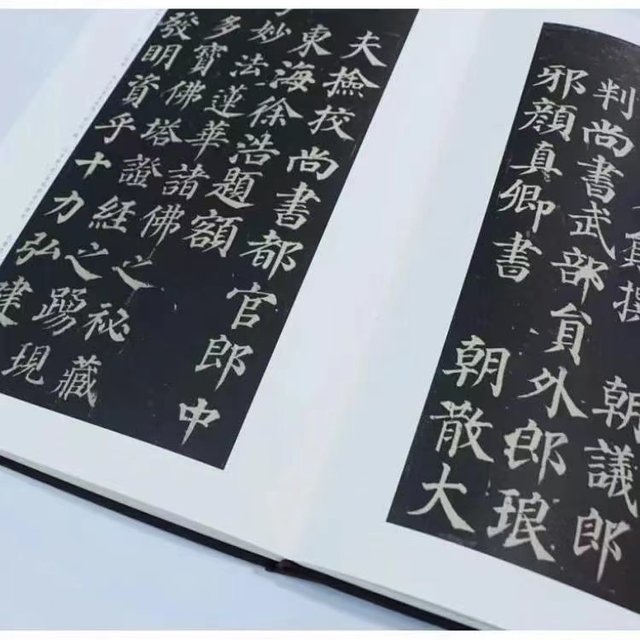 撰 朝議郎
判尚書武部員外郎琅
邪顏真卿書 朝散大
夫撿校尚書都官郎中
東海徐浩題額
妙法蓮華諸佛之祕藏
多寶佛塔證經之踴現
發明資乎十力弘建